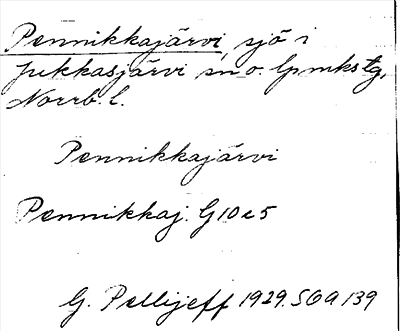 Pennikkajärvi, sjö i
Jukkasjärvi sn o. lpmks tg,
Norrb. l.
Pennikkajärvi
Pennikkaj. G10e5
G. Pellijeff 1929. SOA 139